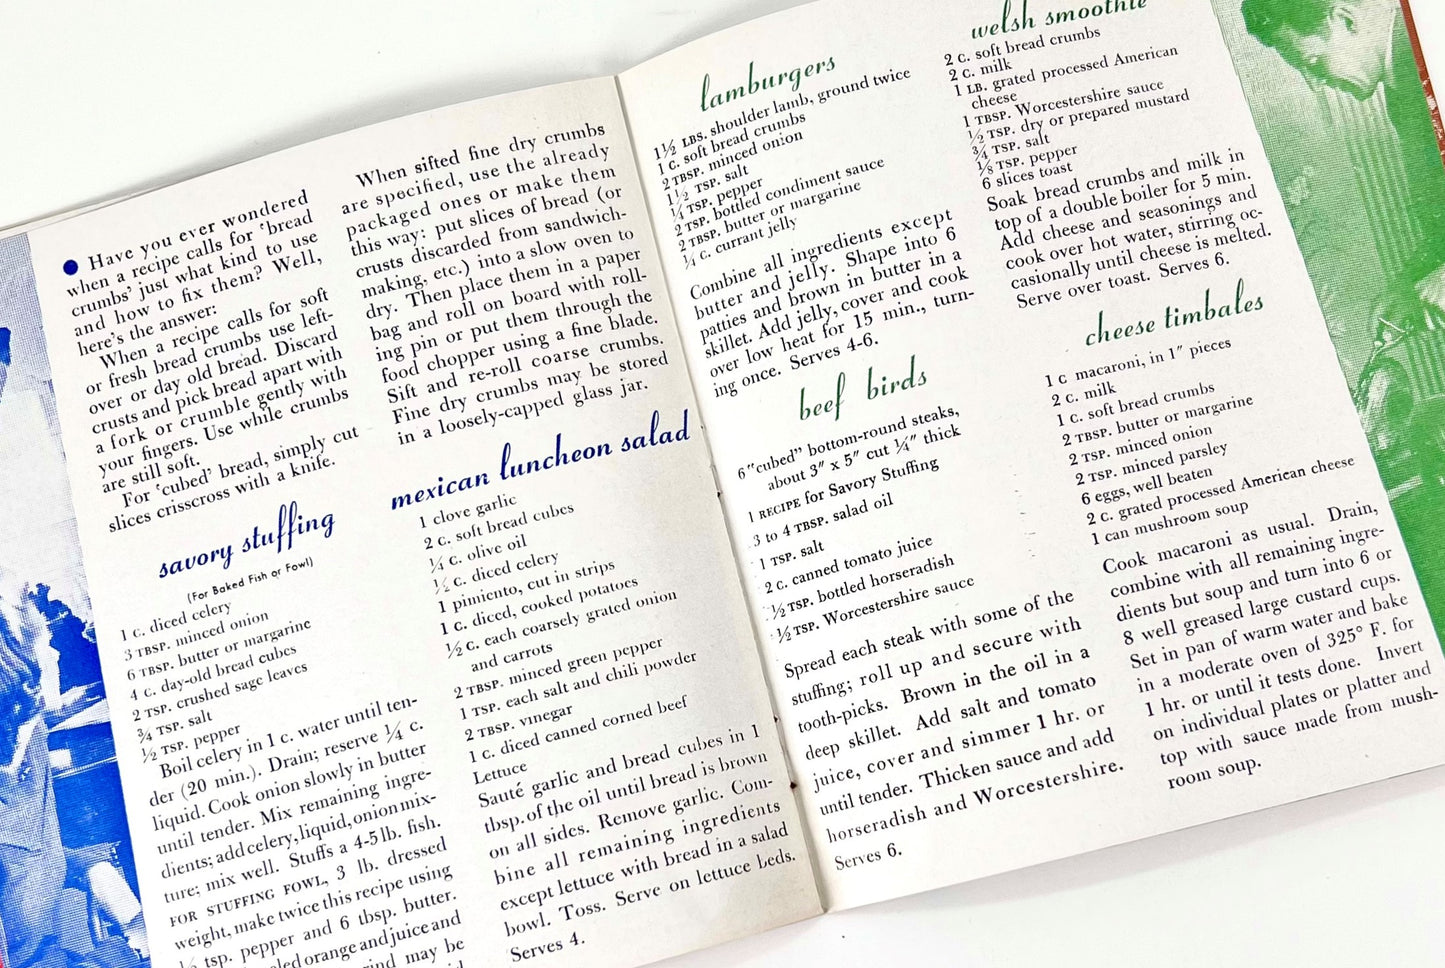 ● Have you ever wondered
when a recipe calls for 'bread
crumbs' just what kind to use
and how to fix them? Well,
here's the answer:
When a recipe calls for soft
or fresh bread crumbs use left-
over or day old bread. Discard
crusts and pick bread apart with
a fork or crumble gently with
your fingers. Use while crumbs
are still soft.
For 'cubed' bread, simply cut
slices crisscross with a knife.
savory stuffing
(For Baked Fish or Fowl)
1 c. diced celery
3 TBSP. minced onion
6 TBSP. butter or margarine
4 c. day-old bread cubes
2 TSP. crushed sage leaves
¾ TSP. salt
½ TSP. pepper
Boil celery in 1 c. water until ten-
der (20 min.). Drain; reserve ¼ c.
liquid. Cook onion slowly in butter
until tender. Mix remaining ingre-
dients; add celery, liquid, onion mix-
ture; mix well. Stuffs a 4-5 lb. fish.
FOR STUFFING FOWL, 3 lb. dressed
weight, make twice this recipe using
½ tsp. pepper and 6 tbsp. butter.
orange and juice and
may be
When sifted fine dry crumbs
are specified, use the already
packaged ones or make them
this way: put slices of bread (or
crusts discarded from sandwich-
making, etc.) into a slow oven to
dry. Then place them in a paper
bag and roll on board with roll-
ing pin or put them through the
food chopper using a fine blade.
Sift and re-roll coarse crumbs.
Fine dry crumbs may be stored
in a loosely-capped glass jar.
mexican luncheon salad
1 clove garlic
2 c. soft bread cubes
¼ c. olive oil
½ c. diced celery
1 pimiento, cut in strips
1 c. diced, cooked potatoes
½ c. each coarsely grated onion
and carrots
2 TBSP. minced green pepper
1 TSP. each salt and chili powder
2 TBSP. vinegar
1 c. diced canned corned beef
Lettuce
Sauté garlic and bread cubes in 1
tbsp. of the oil until bread is brown
on all sides. Remove garlic. Com-
bine all remaining ingredients
except lettuce with bread in a salad
bowl. Toss. Serve on lettuce beds.
Serves 4.
lamburgers
1½ LBS. shoulder lamb, ground twice
1 c. soft bread crumbs
2 TBSP. minced onion
1½ TSP. salt
¼ TSP. pepper
2 TSP. bottled condiment sauce
2 TBSP. butter or margarine
¼ c. currant jelly
Combine all ingredients except
butter and jelly. Shape into 6
patties and brown in butter in a
skillet. Add jelly, cover and cook
over low heat for 15 min., turn-
ing once. Serves 4-6.
beef birds
6 "cubed" bottom-round steaks,
about 3" x 5" cut ¼" thick
1 RECIPE for Savory Stuffing
3 to 4 TBSP. salad oil
1 TSP. salt
2 c. canned tomato juice
½ TSP. bottled horseradish
½ TSP. Worcestershire sauce
Spread each steak with some of the
stuffing; roll up and secure with
tooth-picks. Brown in the oil in a
deep skillet. Add salt and tomato
juice, cover and simmer 1 hr. or
until tender. Thicken sauce and add
horseradish and Worcestershire.
Serves 6.
welsh smoothie
2 c. soft bread crumbs
2 c. milk
1 LB. grated processed American
cheese
1 TBSP. Worcestershire sauce
½ TSP. dry or prepared mustard
¾ TSP. salt
⅛ TSP. pepper
6 slices toast
Soak bread crumbs and milk in
top of a double boiler for 5 min.
Add cheese and seasonings and
cook over hot water, stirring oc-
casionally until cheese is melted.
Serve over toast. Serves 6.
cheese timbales
1 c macaroni, in 1" pieces
2 c. milk
1 c. soft bread crumbs
2 TBSP. butter or margarine
2 TSP. minced onion
2 TSP. minced parsley
6 eggs, well beaten
2 c. grated processed American cheese
1 can mushroom soup
Cook macaroni as usual. Drain,
combine with all remaining ingre-
dients but soup and turn into 6 or
8 well greased large custard cups.
Set in pan of warm water and bake
in a moderate oven of 325° F. for
1 hr. or until it tests done. Invert
on individual plates or platter and
top with sauce made from mush-
room soup.